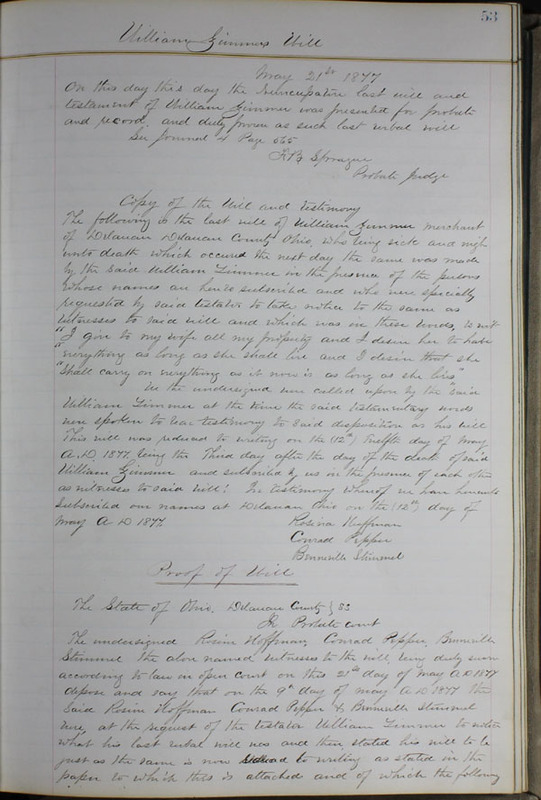 53
William Zimmers Will
May 21st 1877
On this day this day the Nuncupative last will and
testament of William Zimmer was presented for probate
and record, and duly proven as such last verbal will
See Journal 4 Page 565
Sprague
Probate Judge
Copy of the Will and testimony
The following is the last will of William Zimmer merchant
of Delaware Delaware County Ohio, who being sick and nigh
unto death which occured the next day the same was made
by the said William Zimmer in the presence of the persons
whose names are hereto subscribed and who were specially
requested by said testator to take notice to the same as
witnesses to said will and which was in these words, to wit
"I give to my wife all my property and I desire her to have
"everything as long as she shall live and I desire that she
"shall carry on everything as it now is as long as she lives"
We the undersigned were called upon by the said
William Zimmer at the time the said testamentary words
were spoken to bear testimony to said disposition as his will
This will was reduced to writing on the (12th) twelfth day of May
A.D. 1877, being the third day after the day of the death of said
William Zimmer and subscribed by us in the presence of each other
as witnesses to said will! In testimony whereof we have hereunto
subscribed our names at Delaware Ohio on the (12th) day of
May A D 1877.
Rosina Hoffman
Conrad Pepper
Benneville Stimmel
Proof of Will
The State of Ohio, Delaware County } SS
In Probate court
The undersigned Rosina Hoffman, Conrad Pepper, Benneville
Stimmel the above named witnesses to the will, being duly sworn
according to law in open court on this 21st day of May A D 1877
depose and say that on the 9th day of May A D 1877 the
said Rosina Hoffman Conrad Pepper & Benneville Stimmel
were, at the request of the testator William Zimmer to notice
what his last verbal will was and then stated his will to be
just as the same is now to writing as stated in the
paper to which this is attached and of which the following